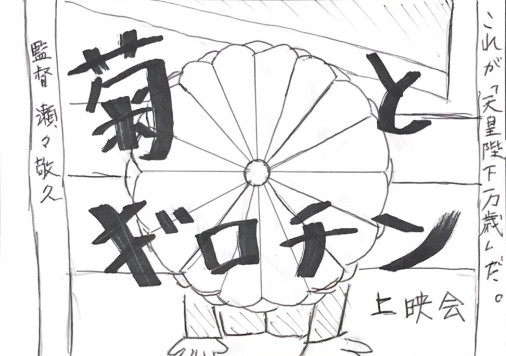 これが「天皇陛下万歳」だ。
菊と
ギロチン
上映会
監督 瀬々敬久